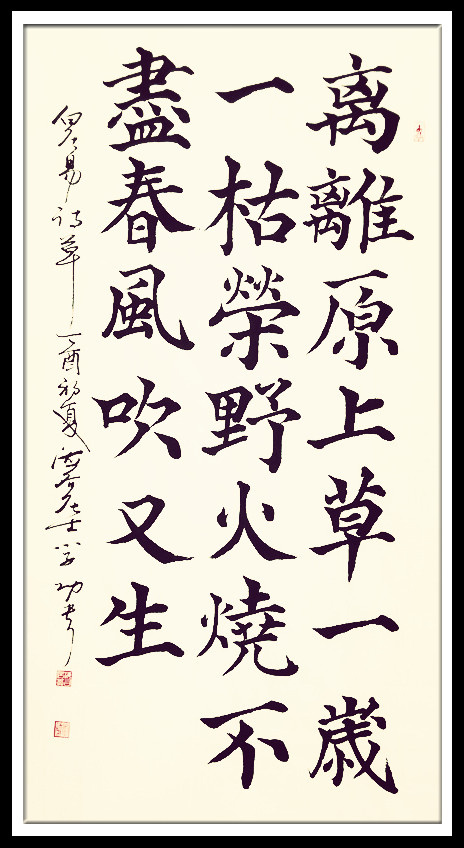 离離原上草一歲
一枯榮野火燒不
盡春風吹又生
白居易诗草 丁酉初夏 居士